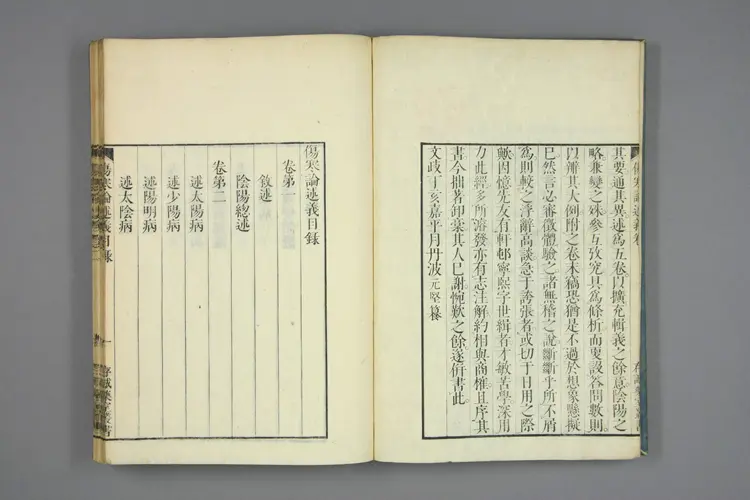 其要通其異述爲五卷以擴充輯義之餘意陰陽之
略兼變之殊參互攷究具爲條析而更設答問數則
以辨其大例附之卷末稿恐猶是不過於想象懸擬
已然言必審徵體驗之諸無稽之說斷斷乎所不屑
爲則較之浮辭高談急于誇張者或切于日用之際
歟因憶先友有軒邨寧熙字世緝者才敏苦學深用
力此經多所溶發亦有志注解約相與商榷且序其
書今拙著卸稾其人已謝惋歎之餘遂倂書此
文政丁亥嘉平月丹波元堅纂
傷寒論述義目錄
卷第一
敘述
陰陽總述
卷第二
述太陽病
述少陽病
述陽明病
述太陰病
傷寒論述義目錄
一
存誠藥室叢書